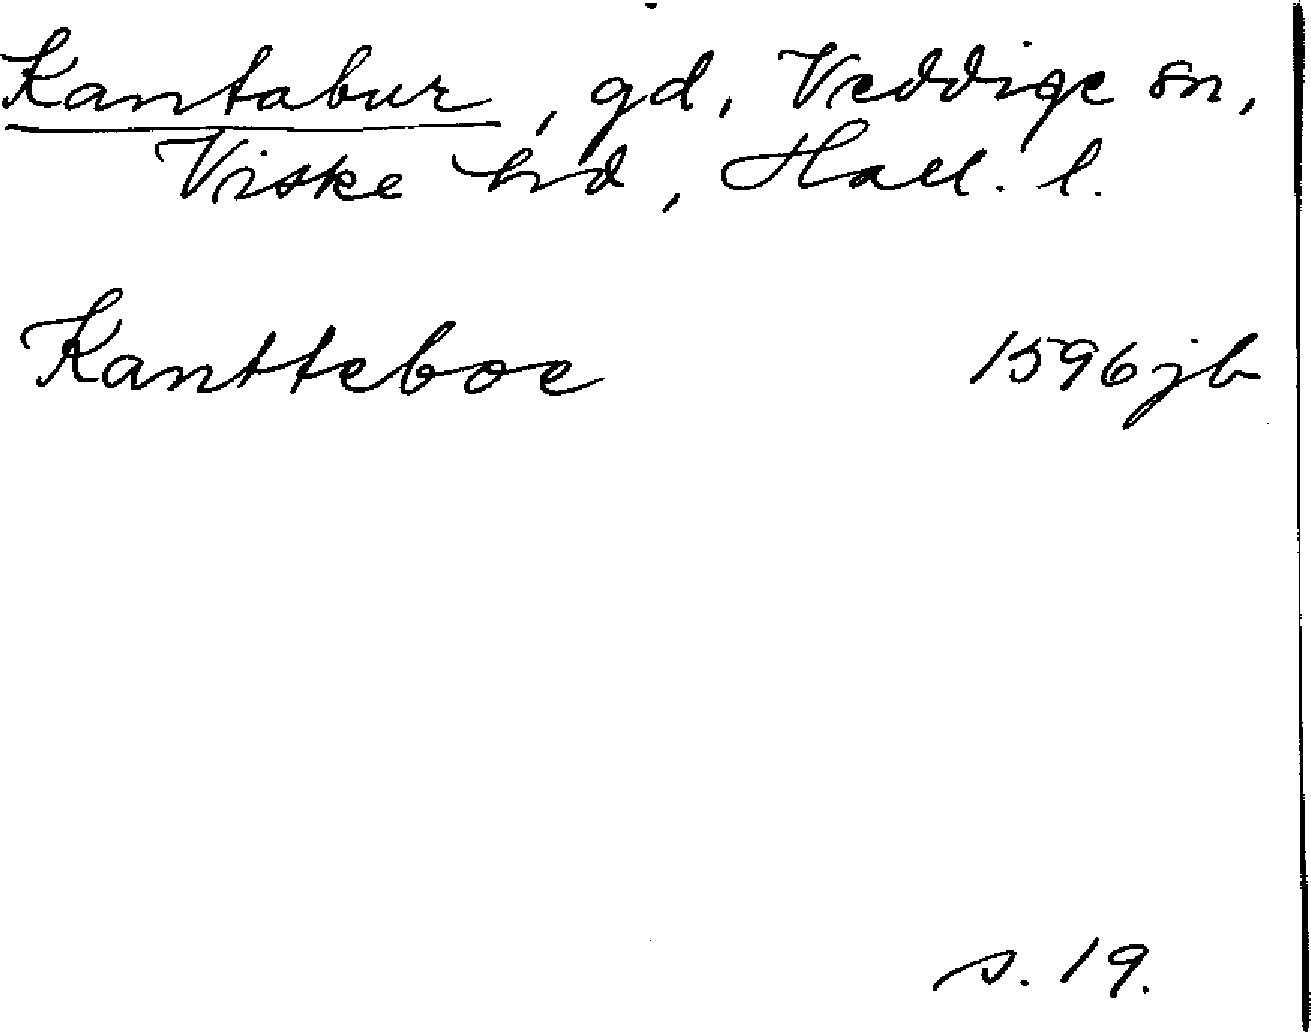 Kantabur, gd, Veddige sn,
Viske hd, Hall. l.
Kantteboe 1596 jb
s. 19.